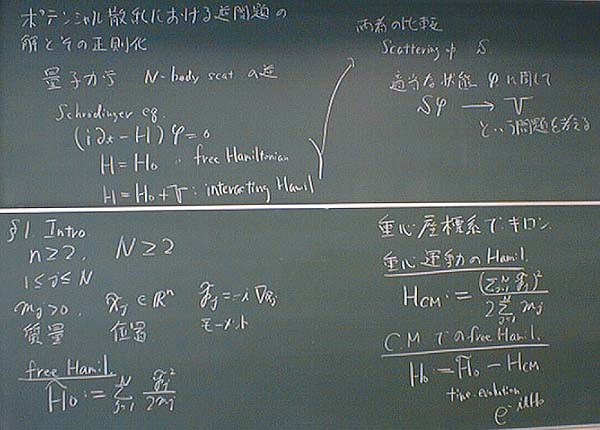 ポテンシャル散乱における逆問題の
解とその正則化
量子力学 N-body scat の逆
Schrödinger eq.
(i∂t - H)φ = 0
H = H0 : free Hamiltonian
H = H0 + V : interacting Hamil
両者の比較
Scattering op S
適当な状態 φ に関して
Sφ → V
という問題を考える
§1. Intro
n≥2, N≥2
1≤j≤N
mj>0, x̃j ∈ ℝⁿ p̃j = -i∇x̃j
質量 位置 モーメント
free Hamil.
H̃0 := Σ_{j=1}^{N} p̃j²/2mj
重心座標系でギロン
重心運動のHamil.
HCM := (Σ_{j=1}^{N} p̃j)²/2Σ_{j=1}^{N} mj
C.M での free Hamil.
H0 := H̃0 - HCM
time-evolution
e^{-itH0}